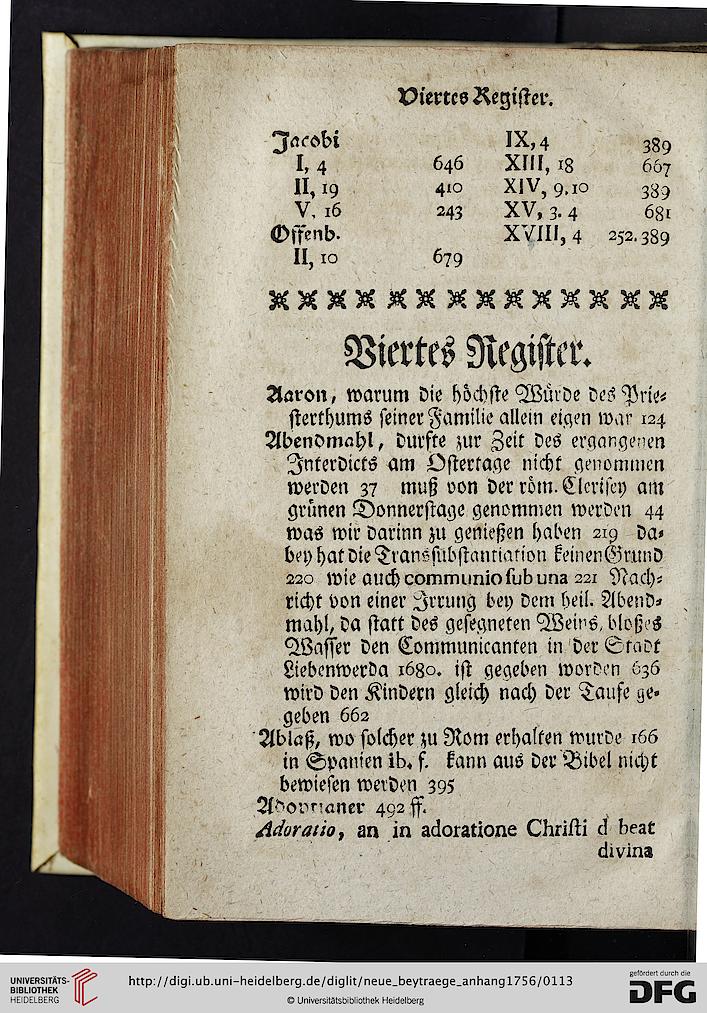 Viertes Register.
Jacobi
I, 4 646
II, 19 410
V. 16 243
Offenb.
II, 10 679
IX, 4 389
XIII, 18 667
XIV, 9. 10 389
XV, 3. 4 681
XVIII, 4 252. 389
Viertes Register.
Aaron, warum die höchste Würde des Prie⸗
sterthums seiner Familie allein eigen war 124
Abendmahl, durfte zur Zeit des ergangenen
Interdicts am Ostertage nicht genommen
werden 37 muß von der röm. Clerisey am
grünen Donnerstage genommen werden 44
was wir darinn zu genießen haben 219 da⸗
bey hat die Transsubstantiation keinen Grund
220 wie auch communio sub una 221 Nach⸗
richt von einer Irrung bey dem heil. Abend⸗
mahl, da statt des gesegneten Weins, bloßes
Wasser den Communicanten in der Stadt
Liebenwerda 1680. ist gegeben worden 636
wird den Kindern gleich nach der Taufe ge⸗
geben 662
Ablaß, wo solcher zu Rom erhalten wurde 166
in Spanien ib. f. kann aus der Bibel nicht
bewiesen werden 395
Adoptianer 492 ff.
Adoratio, an in adoratione Christi d beat
divina
UNIVERSITÄTS-
BIBLIOTHEK
HEIDELBERG
http://digi.ub.uni-heidelberg.de/diglit/neue_beytraege_anhang1756/0113
© Universitätsbibliothek Heidelberg
gefördert durch die
DFG